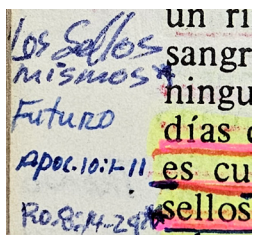 Los Sellos
mismos
Futuro
Apoc. 10:1-11
Ro. 8:14-29
un ri
sangr
ningu
días
es cu
sellos